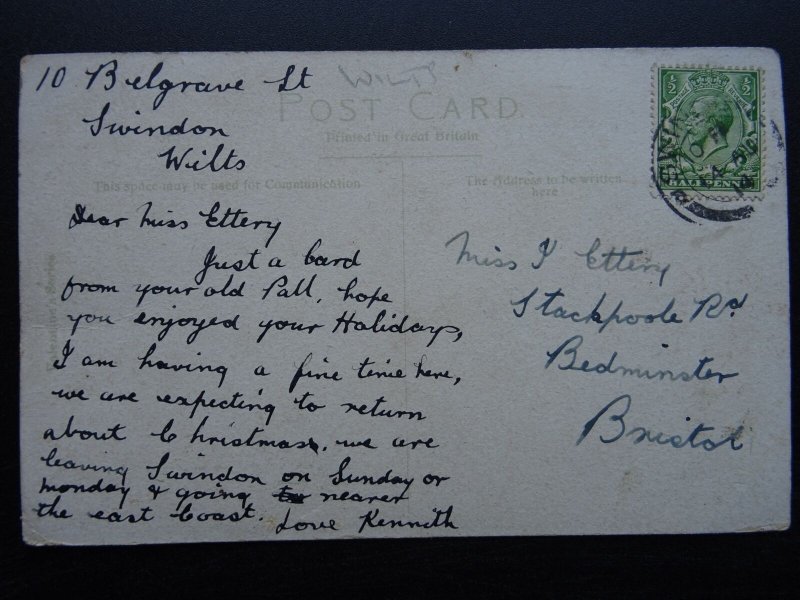 10 Belgrave St
Swindon
Wilts
WILTS
POST CARD
Printed in Great Britain
This space may be used for Communication
The Address to be written
here
Dear Miss Ettery
Just a Card
from your old Pall, hope
you enjoyed your Halidays,
I am having a fine time here,
we are expecting to return
about Christmas, we are
leaving Swindon on Sunday or
Monday & going to nearer
the east Coast. Love Kennith
Miss I Ettery
Stackpoole Rd
Bedminster
Bristol
½ ½